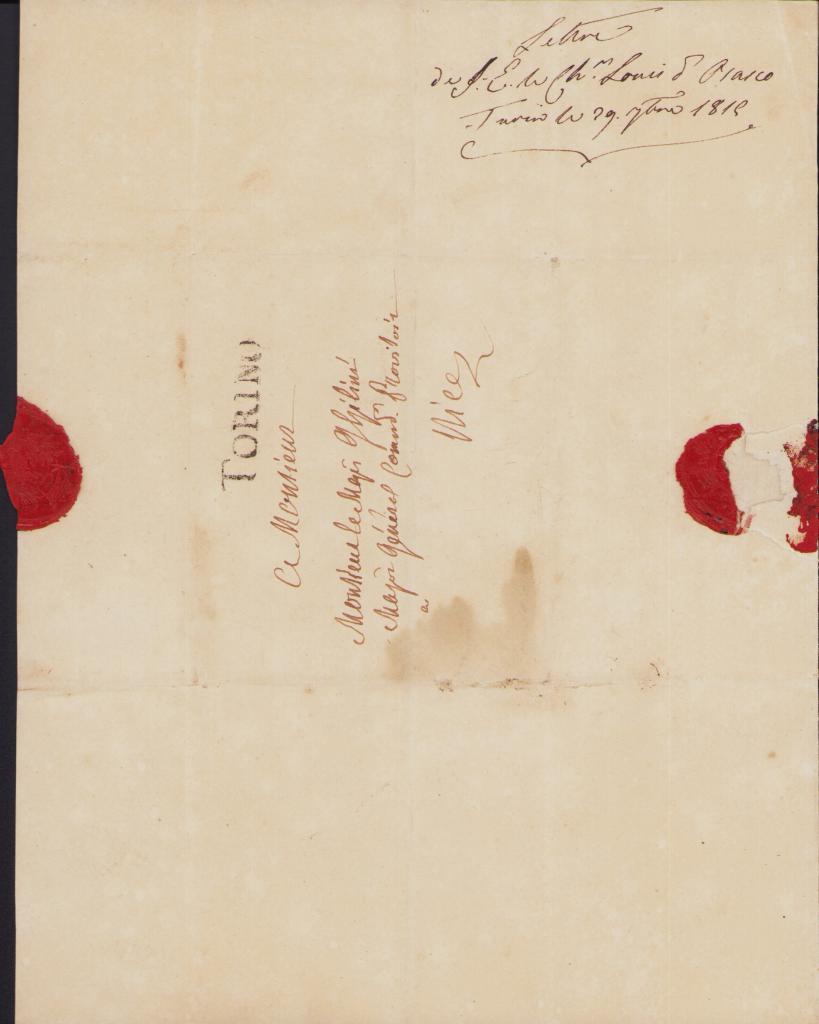 Lettre
de S. E. le Ch.er Louis d' Piasco
Turin le 29. 7bre 1815
TORINO
A Monsieur
Monsieur le Marquis Ghilini
Major Général Command.t Provisoir
a
Nice